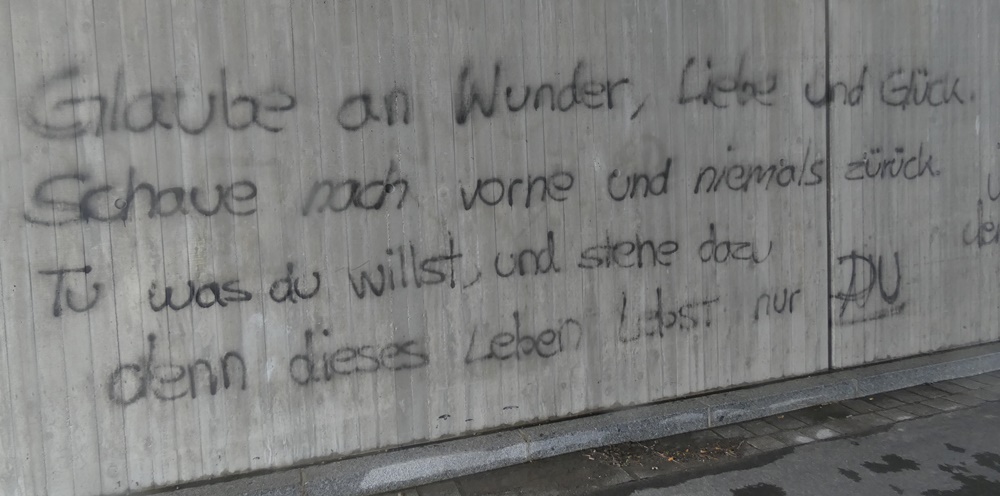 Glaube an Wunder, Liebe und Glück.
Schaue nach vorne und niemals zürück.
Tu was du willst, und stehe dazu
denn dieses Leben Lebst nur DU